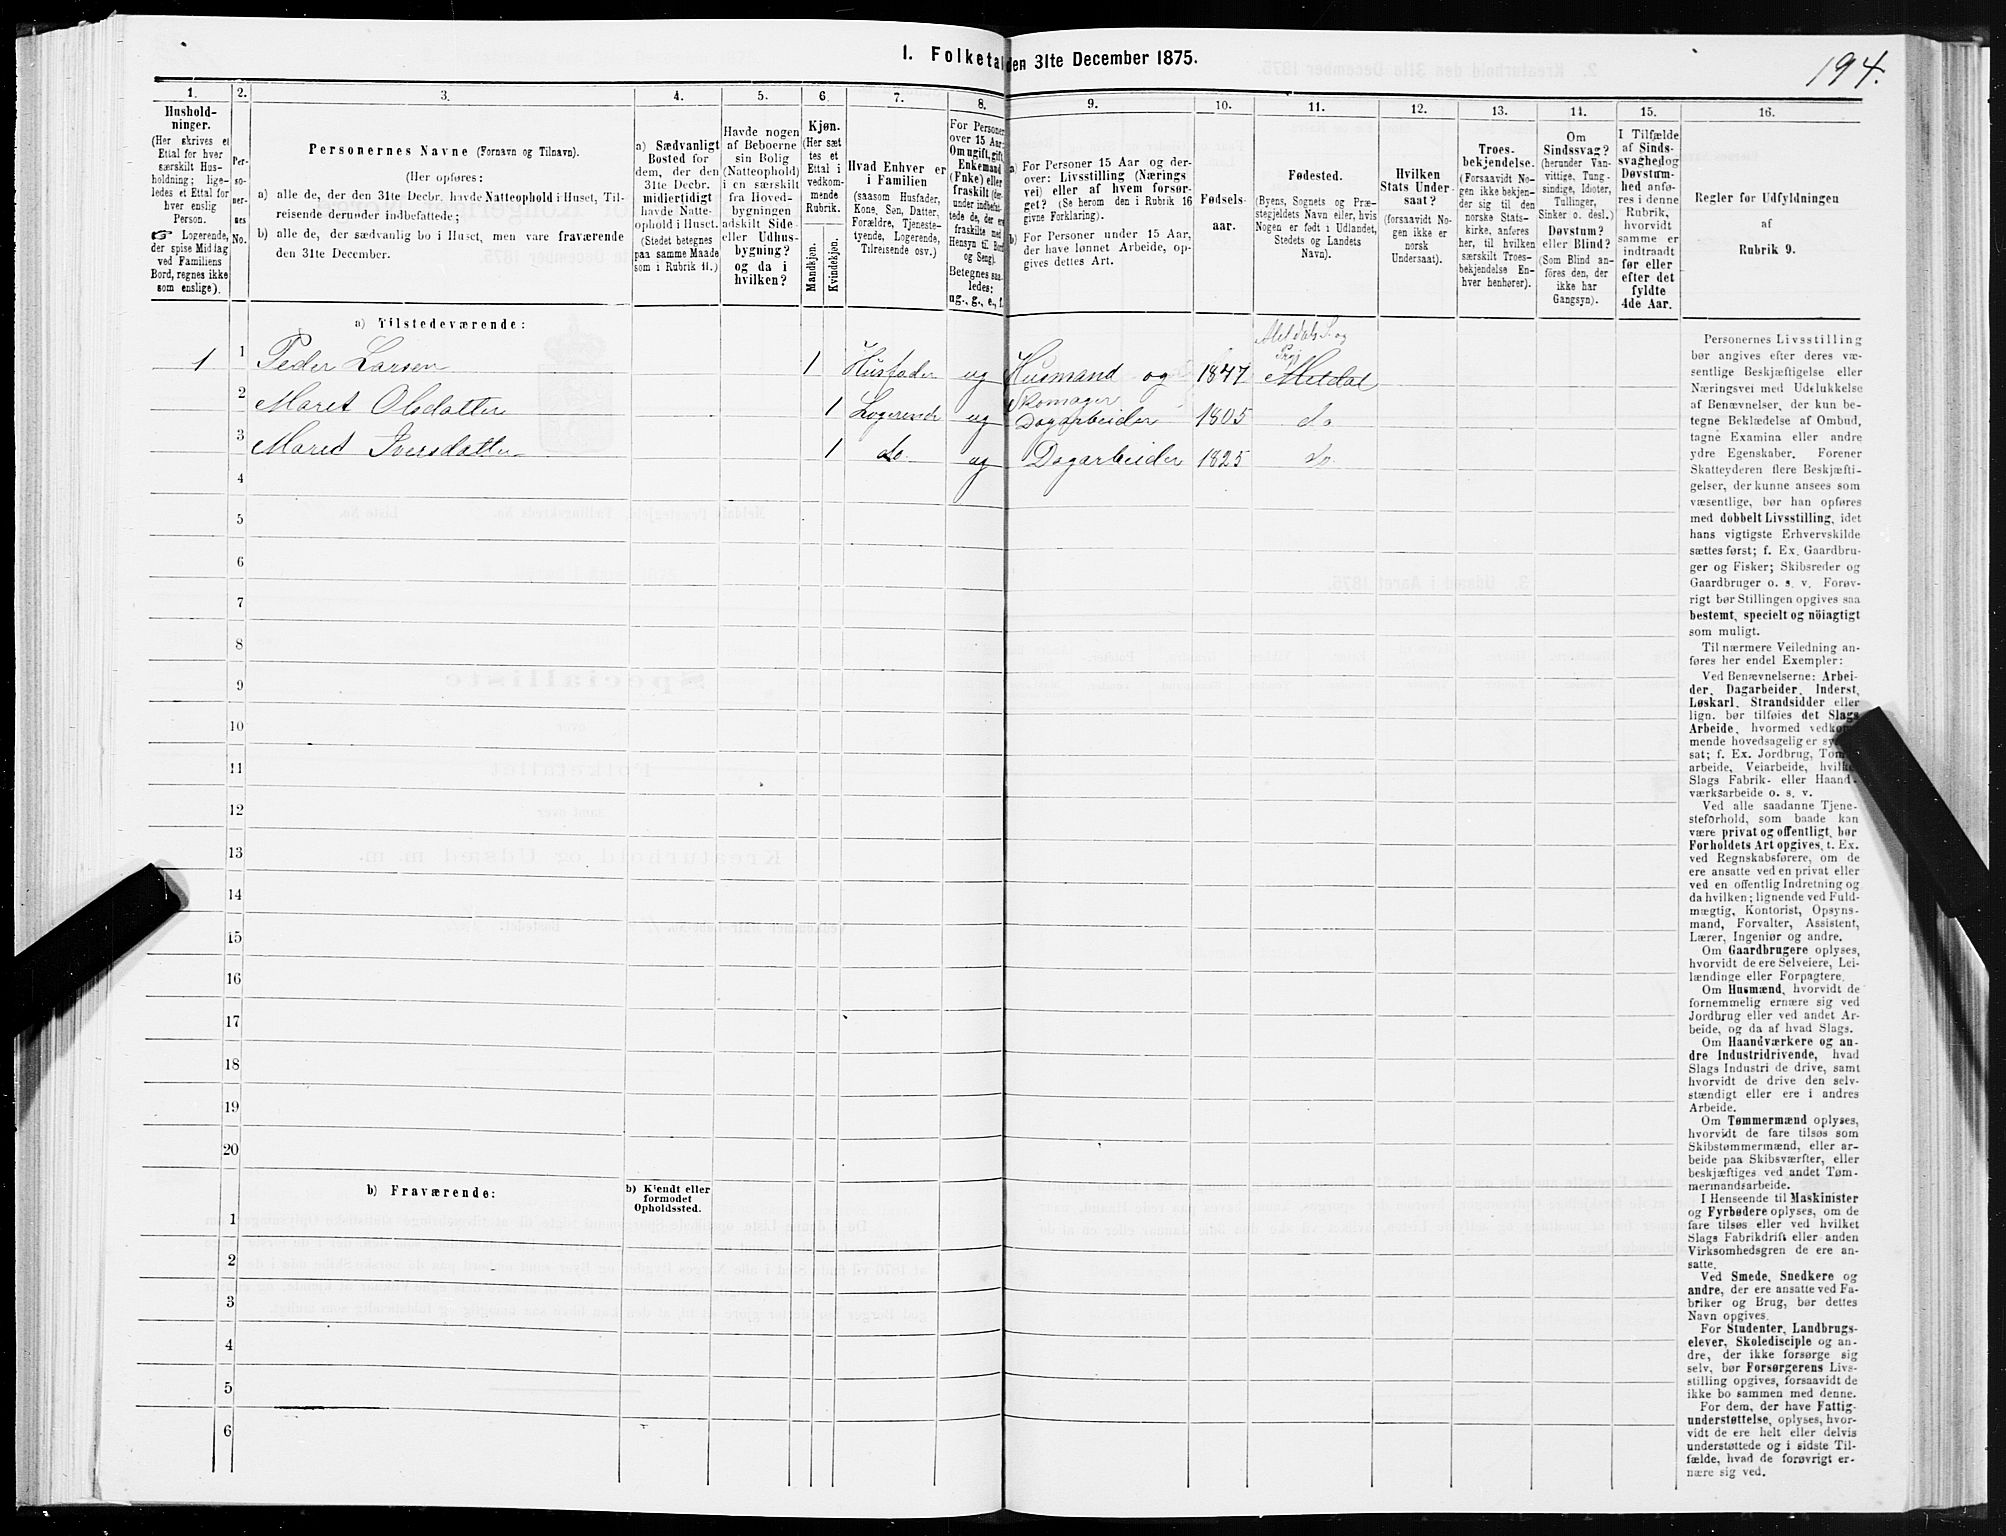 194.
I. Folketal den 31te December 1875.
1.
Hushold-
ninger.
(Her skrives et
Ettal for hver
særskilt Hus-
holdning; lige-
ledes et Ettal for
hver enslig
Person.
☛ Logerende,
der spise Middag
ved Familiens
Bord, regnes ikke
som enslige).
2.
Per-
so-
ner-
nes
No.
3.
Personernes Navne (Fornavn og Tilnavn).
(Her opføres:
a) alle de, der den 31te Decbr. havde Natteophold i Huset, Til-
reisende derunder indbefattede;
b) alle de, der sædvanlig bo i Huset, men vare fraværende
den 31te December.
4.
a) Sædvanligt
Bosted for
dem, der den
31te Decbr.
midlertidigt
havde Natte-
ophold i Huset.
(Stedet betegnes
paa samme Maade
som i Rubrik 11.)
5.
Havde nogen
af Beboerne
sin Bolig
(Natteophold)
i en særskilt
fra Hoved-
bygningen
adskilt Side-
eller Udhus-
bygning?
og da i
hvilken?
6.
Kjøn.
(Her sæt-
tes et
Ettal i
vedkom-
mende
Rubrik.
Mandkjøn.
Kvindekjøn.
7.
Hvad Enhver er
i Familien
(saasom Husfader,
Kone, Søn, Datter,
Forældre, Tjeneste-
tyende, Logerende,
Tilreisende osv.)
8.
For Personer
over 15 Aar:
Om ugift, gift,
Enkemand
(Enke) eller
fraskilt (der-
under indbefat-
tede de, der ere
fraskilte med
Hensyn til Bord
og Seng).
Betegnes saa-
ledes:
ug., g., e., f.
9.
a) For Personer 15 Aar og der-
over: Livsstilling (Nærings-
vei) eller af hvem forsør-
get? (Se herom den i Rubrik 16
givne Forklaring).
b) For Personer under 15 Aar,
der have lønnet Arbeide, op-
gives dettes Art.
10.
Fødsels-
aar.
11.
Fødested.
(Byens, Sognets og Præ-
stegjeldets Navn eller, hvis
Nogen er født i Udlandet,
Stedets og Landets
Navn).
12.
Hvilken
Stats Under-
saat?
(forsaavidt No-
gen ikke er
norsk
Undersaat).
13.
Troes-
bekjendelse.
(Forsaavidt No-
gen ikke bekjen-
der sig til den
norske Stats-
kirke, anføres
her, til hvilken
særskilt Troes-
bekjendelse En-
hver henhører).
14.
Om
Sindssvag?
(herunder Van-
vittige, Tung-
sindige, Idioter,
Tullinger,
Sinker o. desl.)
Døvstum?
eller Blind?
(Som Blind an-
føres den, der
ikke har
Gangsyn).
15.
I Tilfælde
af Sinds-
svaghed og
Døvstum-
hed anfø-
res i denne
Rubrik,
hvorvidt
samme er
indtraadt
før eller
efter det
fyldte
4de Aar.
16.
Regler for Udfyldningen
af
Rubrik 9.
a) Tilstedeværende:
1 1 Peder Larsen 1 Husfader ug Husmand og Skomager 1847 Meldals S. og Prgj Meldal
2 Maret Olsdatter 1 Logerende ug Dagarbeider 1805 do
3 Maret Iversdatter 1 do ug Dagarbeider 1825 do
4
5
6
7
8
9
10
11
12
13
14
15
16
17
18
19
20
b) Fraværende:
b) Kjendt eller
formodet
Opholdssted.
1
2
3
4
5
6
Personernes Livsstilling
bør angives efter deres væ-
sentlige Beskjæftigelse eller
Næringsvei med Udelukkelse
af Benævnelser, der kun be-
tegne Beklædelse af Ombud,
tagne Examina eller andre
ydre Egenskaber. Forener
Skatteyderen flere Beskjæfti-
gelser, der kunne ansees som
væsentlige, bør han opføres
med dobbelt Livsstilling, idet
hans vigtigste Erhvervskilde
sættes først; f. Ex. Gaardbru-
ger og Fisker; Skibsreder og
Gaardbruger o. s. v. Forøv-
rigt bør Stillingen opgives saa
bestemt, specielt og nöiagtigt
som muligt.
Til nærmere Veiledning an-
føres her endel Exempler:
Ved Benævnelserne: Arbei-
der, Dagarbeider, Inderst,
Løskarl, Strandsidder eller
lign. bør tilføies det Slags
Arbeide, hvormed vedkom-
mende hovedsagelig er syssel-
sat; f. Ex. Jordbrug, Tømmer-
arbeide, Veiarbeide, hvilket
Slags Fabrik- eller Haand-
værksarbeide o. s. v.
Ved alle saadanne Tjene-
steforhold, som baade kan
være privat og offentligt, bør
Forholdets Art opgives, f. Ex.
ved Regnskabsførere, om de
ere ansatte ved en privat eller
ved en offentlig Indretning og
da hvilken; lignende ved Fuld-
mægtig, Kontorist, Opsyns-
mand, Forvalter, Assistent,
Lærer, Ingeniør og andre.
Om Gaardbrugere oplyses,
hvorvidt de ere Selveiere, Lei-
lændinge eller Forpagtere.
Om Husmænd, hvorvidt de
fornemmelig ernære sig ved
Jordbrug eller ved andet Ar-
beide, og da af hvad Slags.
Om Haandværkere og an-
dre Industridrivende, hvad
Slags Industri de drive, samt
hvorvidt de drive den selv-
stændigt eller ere i andres
Arbeide.
Om Tømmermænd oplyses,
hvorvidt de fare tilsøs som
Skibstømmermænd, eller ar-
beide paa Skibsværfter, eller
beskjæftiges ved andet Tøm-
mermandsarbeide.
I Henseende til Maskinister
og Fyrbødere oplyses, om de
fare tilsøs eller ved hvilket
Slags Fabrikdrift eller anden
Virksomhedsgren de ere an-
satte.
Ved Smede, Snedkere og
andre, der ere ansatte ved Fa-
briker og Brug, bør dettes
Navn opgives.
For Studenter, Landbrugs-
elever, Skoledisciple og an-
dre, der ikke forsørge sig
selv, bør Forsørgerens Livs-
stilling opgives, forsaavidt de
ikke bo sammen med denne.
For dem, der have Fattig-
understøttelse, oplyses, hvor-
vidt de ere helt eller delvis
understøttede og i sidste Til-
fælde, hvad de forøvrigt er-
nære sig ved.